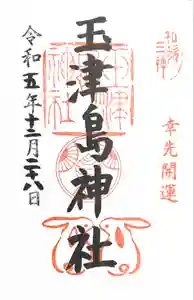 和歌三神
幸先開運
玉津島神社
令和五年十二月二十八日